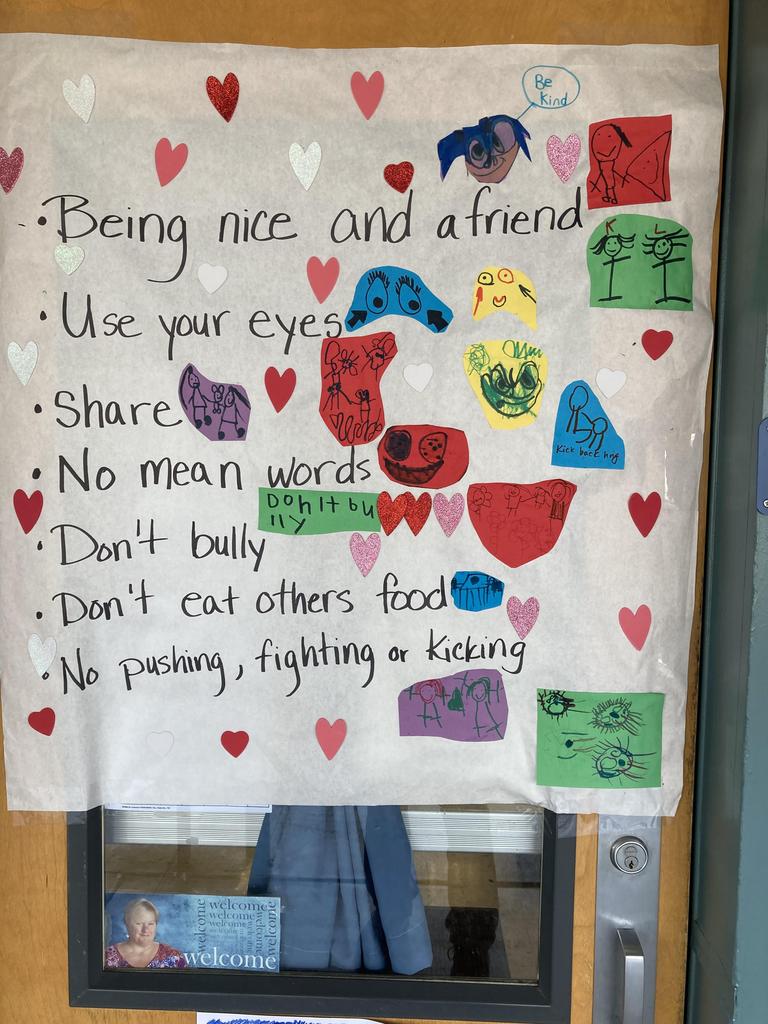 Be
Kind
• Being nice and a friend
K L
• Use your eyes
• Share
Kick back hng
• No mean words
Don It bu
lly
• Don't bully
• Don't eat others food
• No pushing, fighting or kicking
welcome
welcome
welcome
welcome
welcome
welcome
welcome